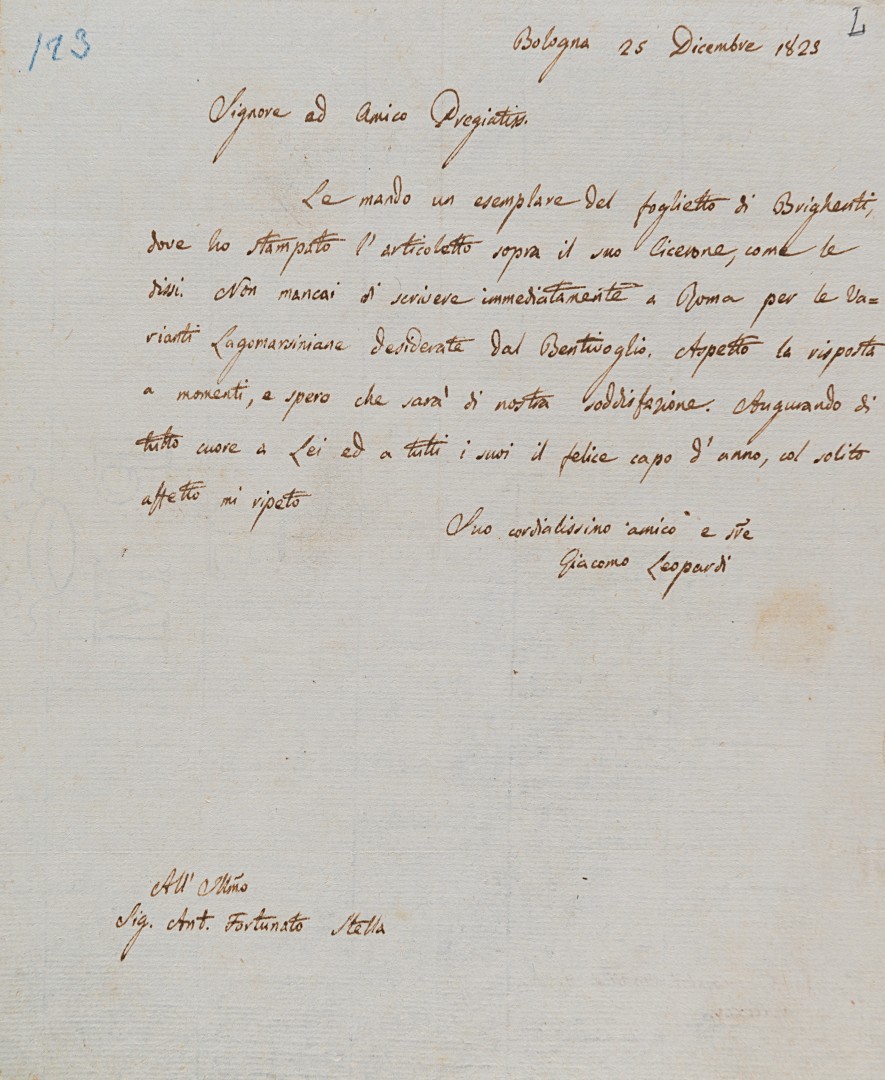 113
L
Bologna 25 Dicembre 1825
Signore ed Amico Pregiatiss.
Le mando un esemplare del foglietto di Brighenti,
dove ho stampato l'articoletto sopra il suo Cicerone, come le
dissi. Non mancai di scrivere immediatamente a Roma per le Va=
rianti Lagomarsiniane desiderate dal Bentivoglio. Aspetto la risposta
a momenti, e spero che sarà di nostra soddisfazione. Augurando di
tutto cuore a Lei ed a tutti i suoi il felice capo d'anno, col solito
affetto mi ripeto
Suo cordialissimo amico e sre
Giacomo Leopardi
All' Illmo
Sig. Ant. Fortunato Stella